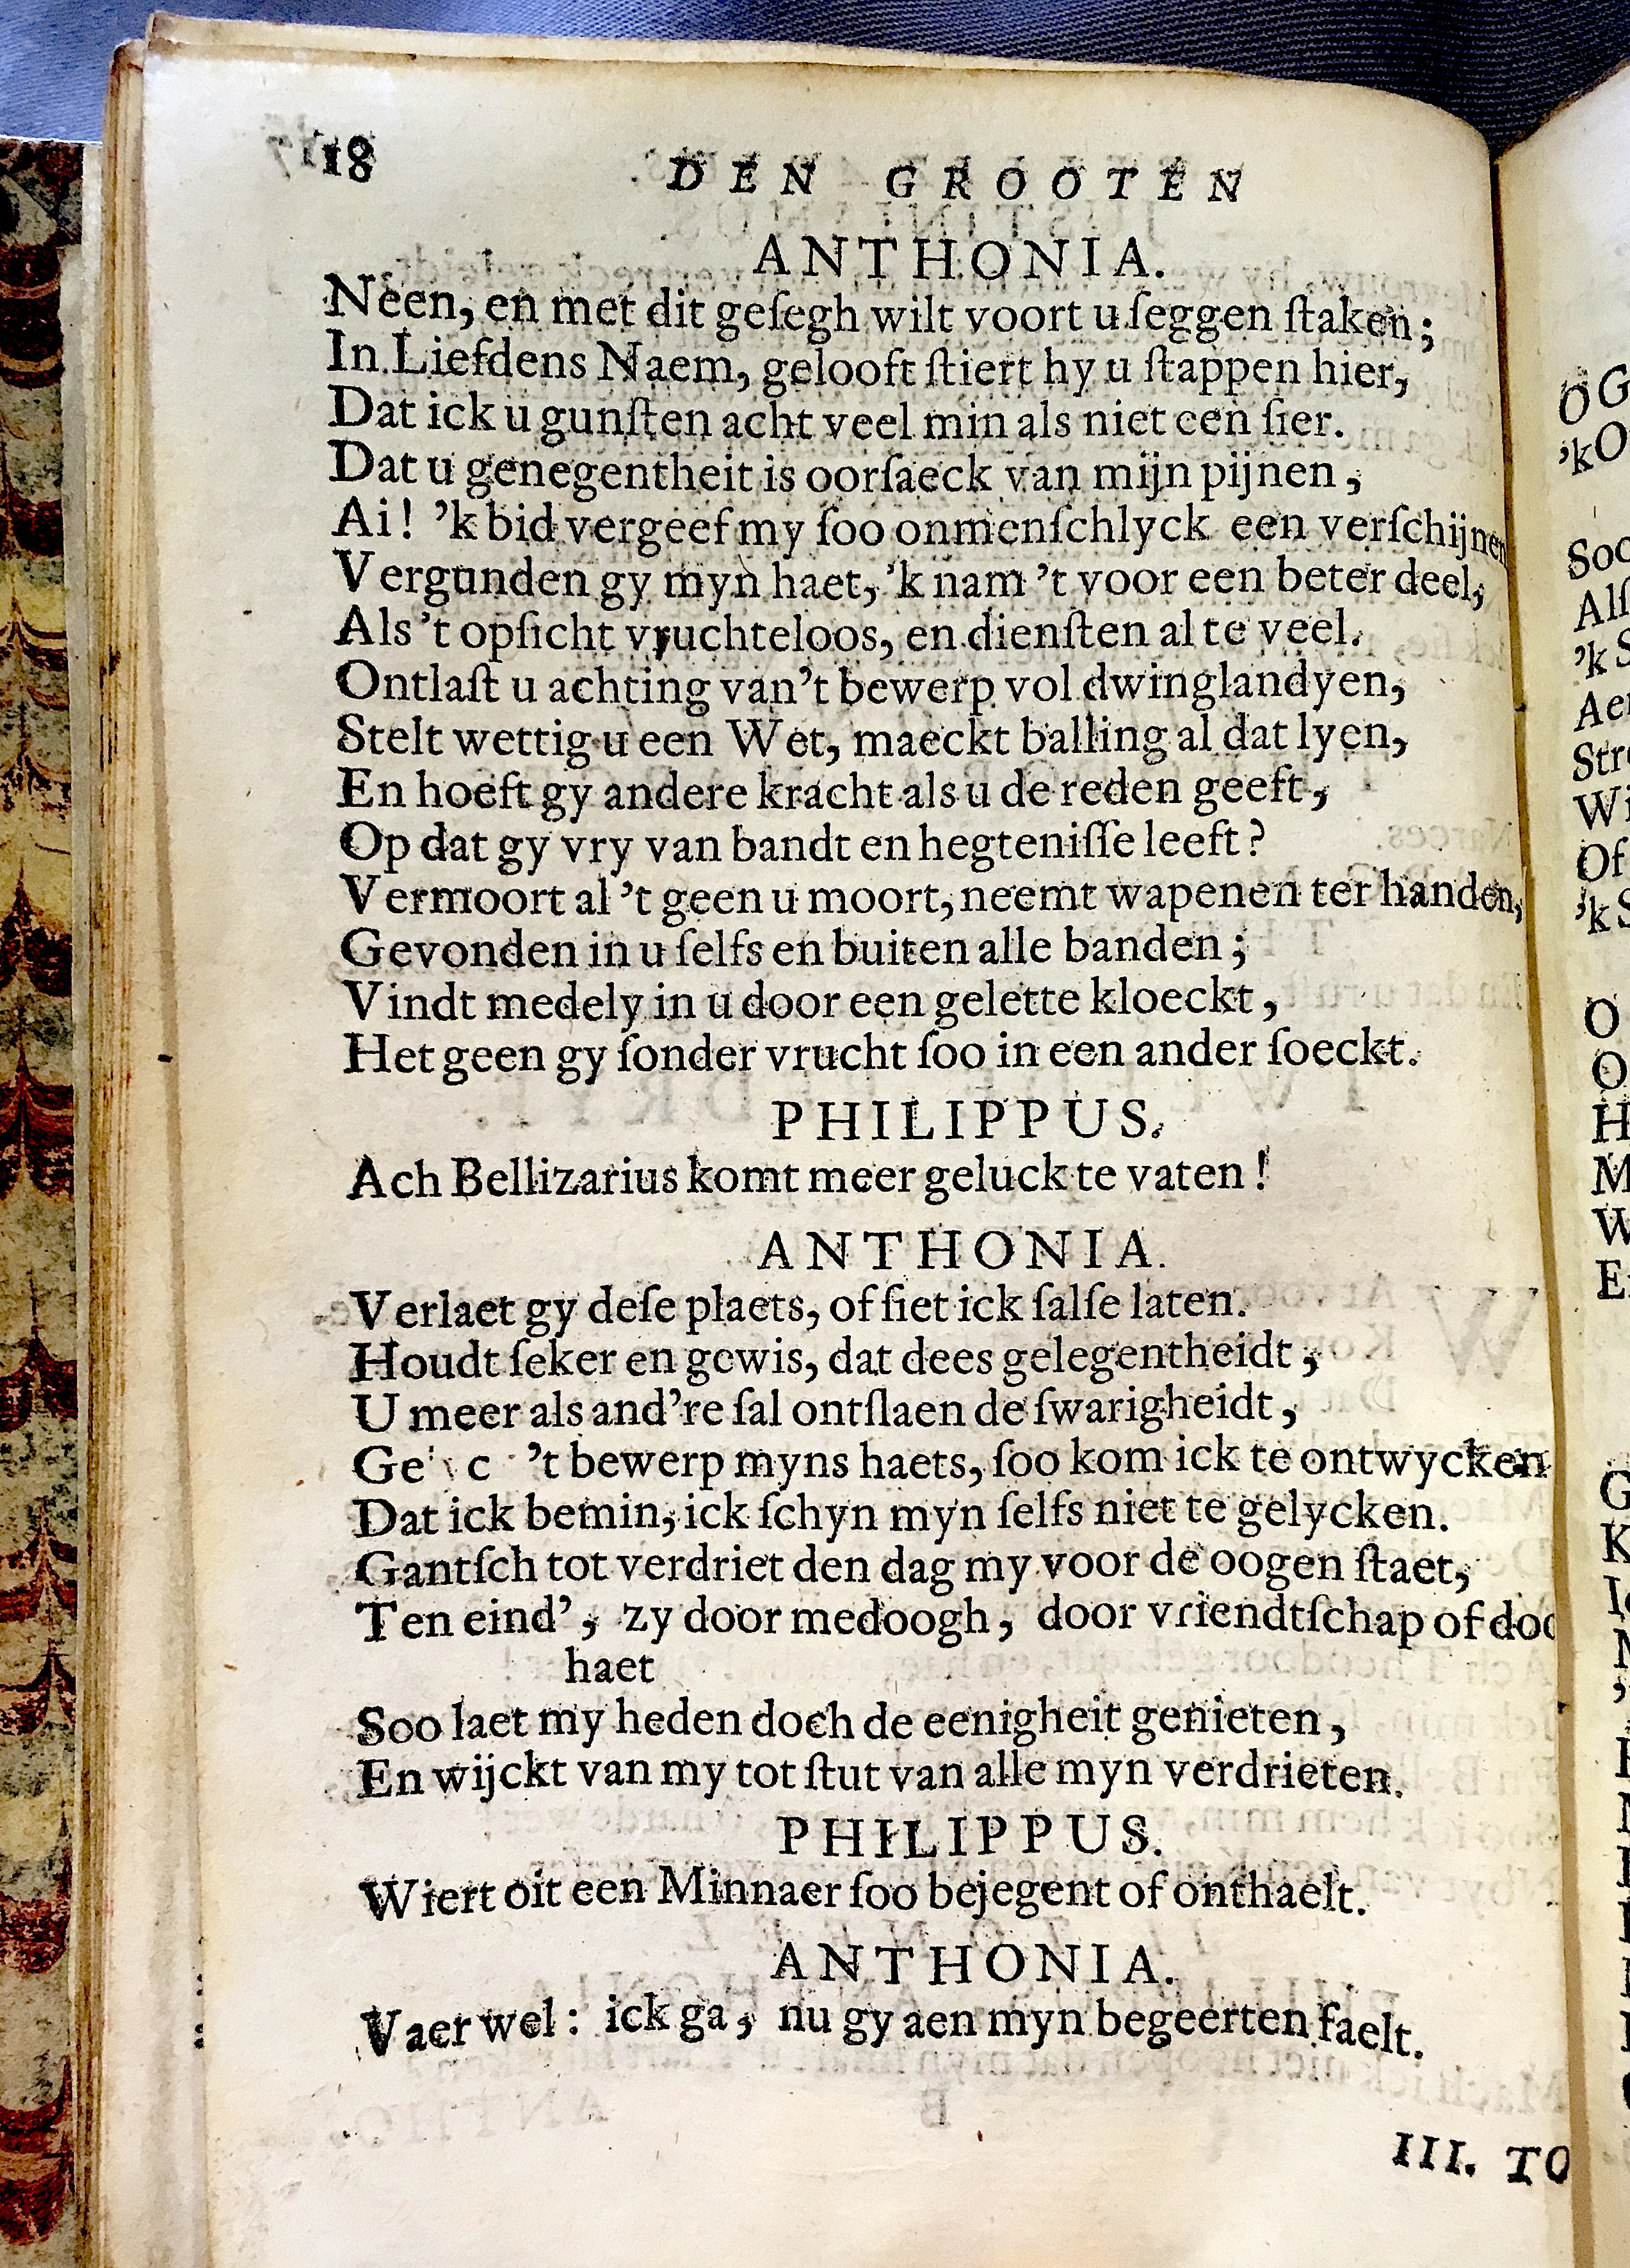 18 DEN GROOTEN
ANTHONIA.
Neen, en met dit geſegh wilt voort u ſeggen ſtaken;
In Liefdens Naem, gelooft ſtiert hy u ſtappen hier,
Dat ick u gunſten acht veel min als niet een ſier.
Dat u genegentheit is oorſaeck van mijn pijnen,
Ai! 'k bid vergeef my ſoo onmenſchlyck een verſchijnen
Vergunden gy myn haet, 'k nam 't voor een beter deel,
Als 't opſicht vruchteloos, en dienſten al te veel.
Ontlaſt u achting van 't bewerp vol dwinglandyen,
Stelt wettig u een Wet, maeckt balling al dat lyen,
En hoeft gy andere kracht als u de reden geeft,
Op dat gy vry van bandt en hegteniſſe leeft?
Vermoort al 't geen u moort, neemt wapenen ter handen,
Gevonden in u ſelfs en buiten alle banden;
Vindt medely in u door een gelette kloeckt,
Het geen gy ſonder vrucht ſoo in een ander ſoeckt.
PHILIPPUS.
Ach Bellizarius komt meer geluck te vaten!
ANTHONIA.
Verlaet gy deſe plaets, of ſiet ick ſalſe laten.
Houdt ſeker en gewis, dat dees gelegentheidt,
U meer als and're ſal ontſlaen de ſwarigheidt,
't bewerp myns haets, ſoo kom ick te ontwycken
Dat ick bemin, ick ſchyn myn ſelfs niet te gelycken.
Gantſch tot verdriet den dag my voor de oogen ſtaet,
Ten eind', zy door medoogh, door vriendtſchap of
haet
Soo laet my heden doch de eenigheit genieten,
En wijckt van my tot ſtut van alle myn verdrieten.
PHILIPPUS.
Wiert oit een Minnaer ſoo bejegent of onthaelt.
ANTHONIA.
Vaer wel: ick ga, nu gy aen myn begeerten faelt.
III. TO